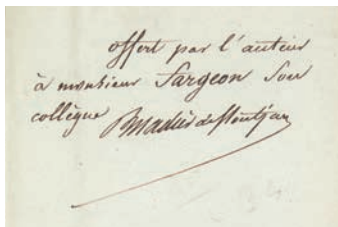 offert par l'auteur
à monsieur Fargeon Son
collègue Madier de Montjau